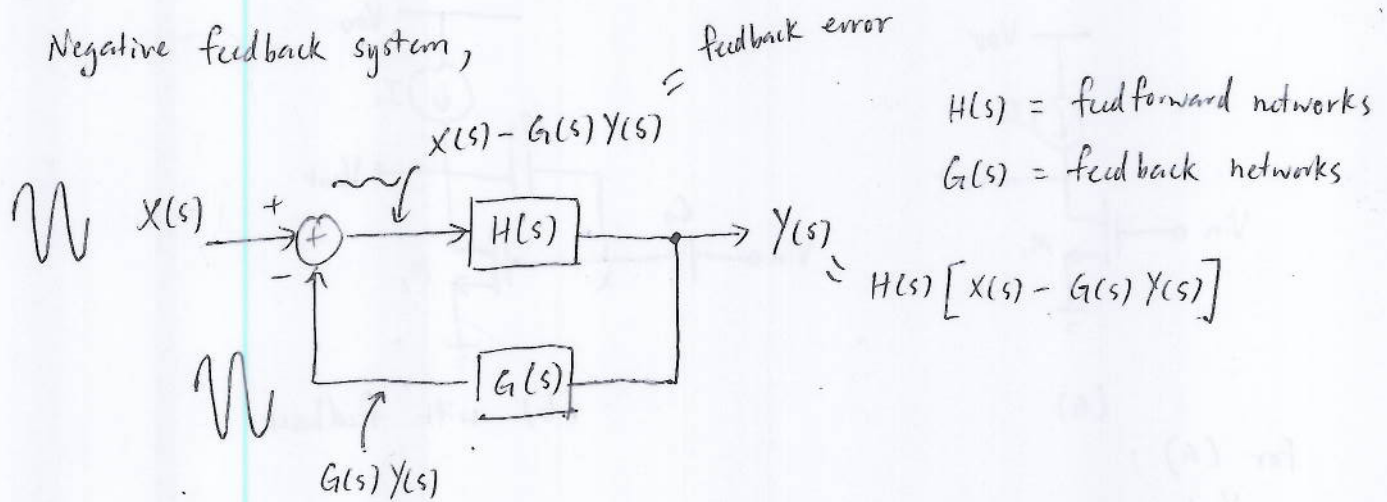 Negative feedback system,
feedback error
=
X(s) - G(s) Y(s)
H(s) = feedforward networks
G(s) = feedback networks
X(s)
+
+
-
H(s)
Y(s)
= H(s) [X(s) - G(s) Y(s)]
G(s)
G(s) Y(s)